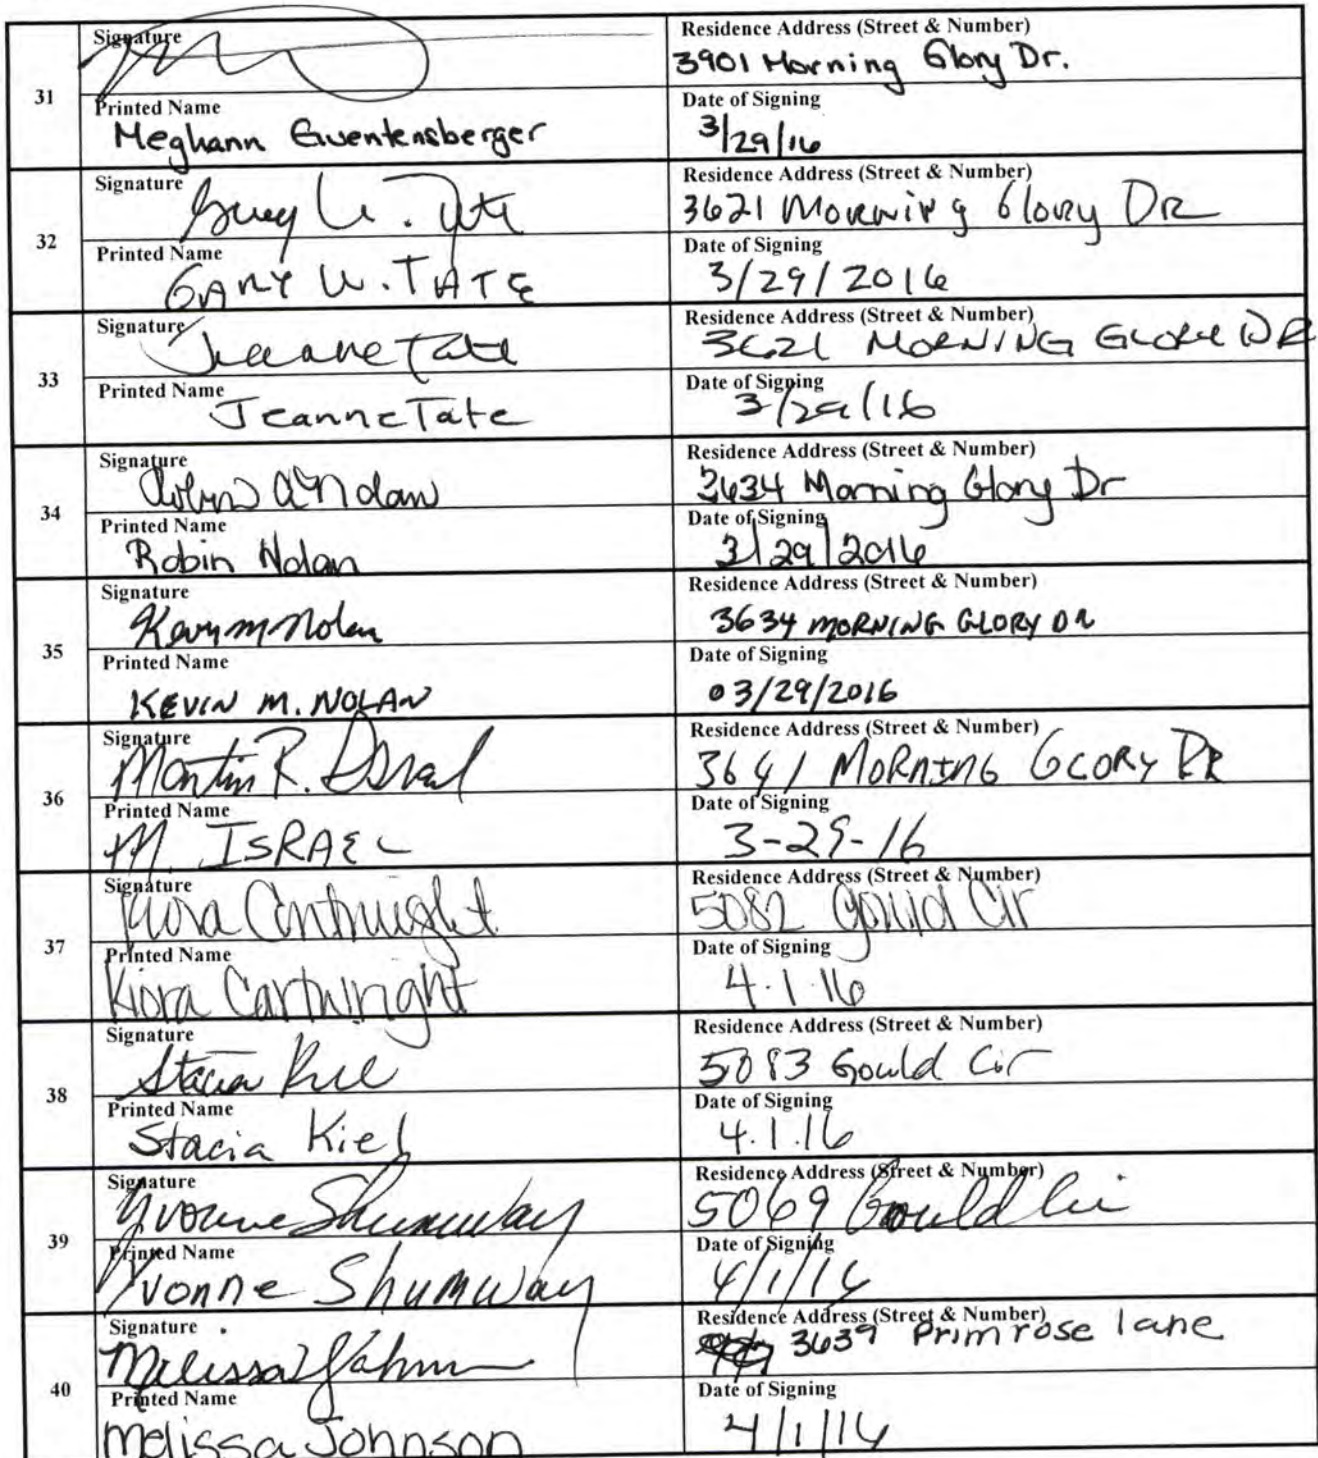 Signature
Residence Address (Street & Number)
3901 Morning Glory Dr.
31
Printed Name
Meghann
Date of Signing
3/29/16
Signature
Gary W. Tate
Residence Address (Street & Number)
3621 Morning Glory DR
32
Printed Name
GARY W. TATE
Date of Signing
3/29/2016
Signature
Jeanne Tate
Residence Address (Street & Number)
3621 MORNING GLORY DR
33
Printed Name
Jeanne Tate
Date of Signing
3/29/16
Signature
Robin A Nolan
Residence Address (Street & Number)
3634 Morning Glory Dr
34
Printed Name
Robin Nolan
Date of Signing
3/29/2016
Signature
Kevin M Nolan
Residence Address (Street & Number)
3634 MORNING GLORY DR
35
Printed Name
KEVIN M. NOLAN
Date of Signing
03/29/2016
Signature
Martin R. Israel
Residence Address (Street & Number)
3641 MORNING GLORY DR
36
Printed Name
M. ISRAEL
Date of Signing
3-29-16
Signature
Kiora Cartwright
Residence Address (Street & Number)
5082 Gould Cir
37
Printed Name
Kiora Cartwright
Date of Signing
4.1.16
Signature
Stacia Kiel
Residence Address (Street & Number)
5083 Gould Cir
38
Printed Name
Stacia Kiel
Date of Signing
4.1.16
Signature
Yvonne Shumway
Residence Address (Street & Number)
5069 Gould Cir
39
Printed Name
Yvonne Shumway
Date of Signing
4/1/16
Signature
Melissa Johnson
Residence Address (Street & Number)
3639 Primrose lane
40
Printed Name
Melissa Johnson
Date of Signing
4/1/16